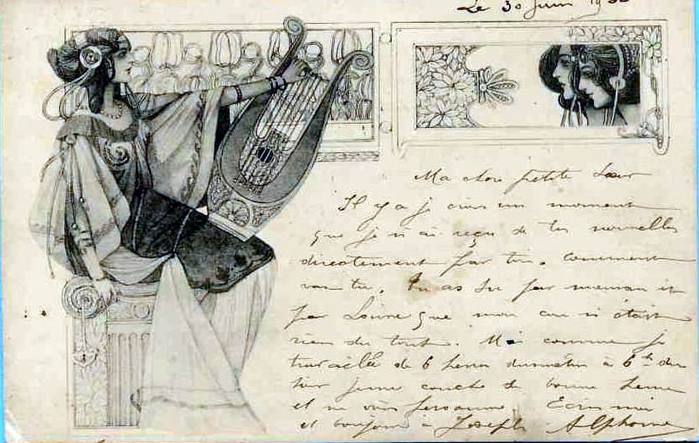 Le 30 Juin 19
Ma chère petite Sœur
Il y a je crois un moment
que je n ai reçu de tes nouvelles
directement par toi, comment
vas tu, Tu as su par maman et
par Louise que mon n était
rien du tout. Moi comme je
travaille de 6 heures du matin à 6h du
soir je me couche de bonne heure
et ne vois personne Ecris moi
et bonjour à Joseph Alphonse